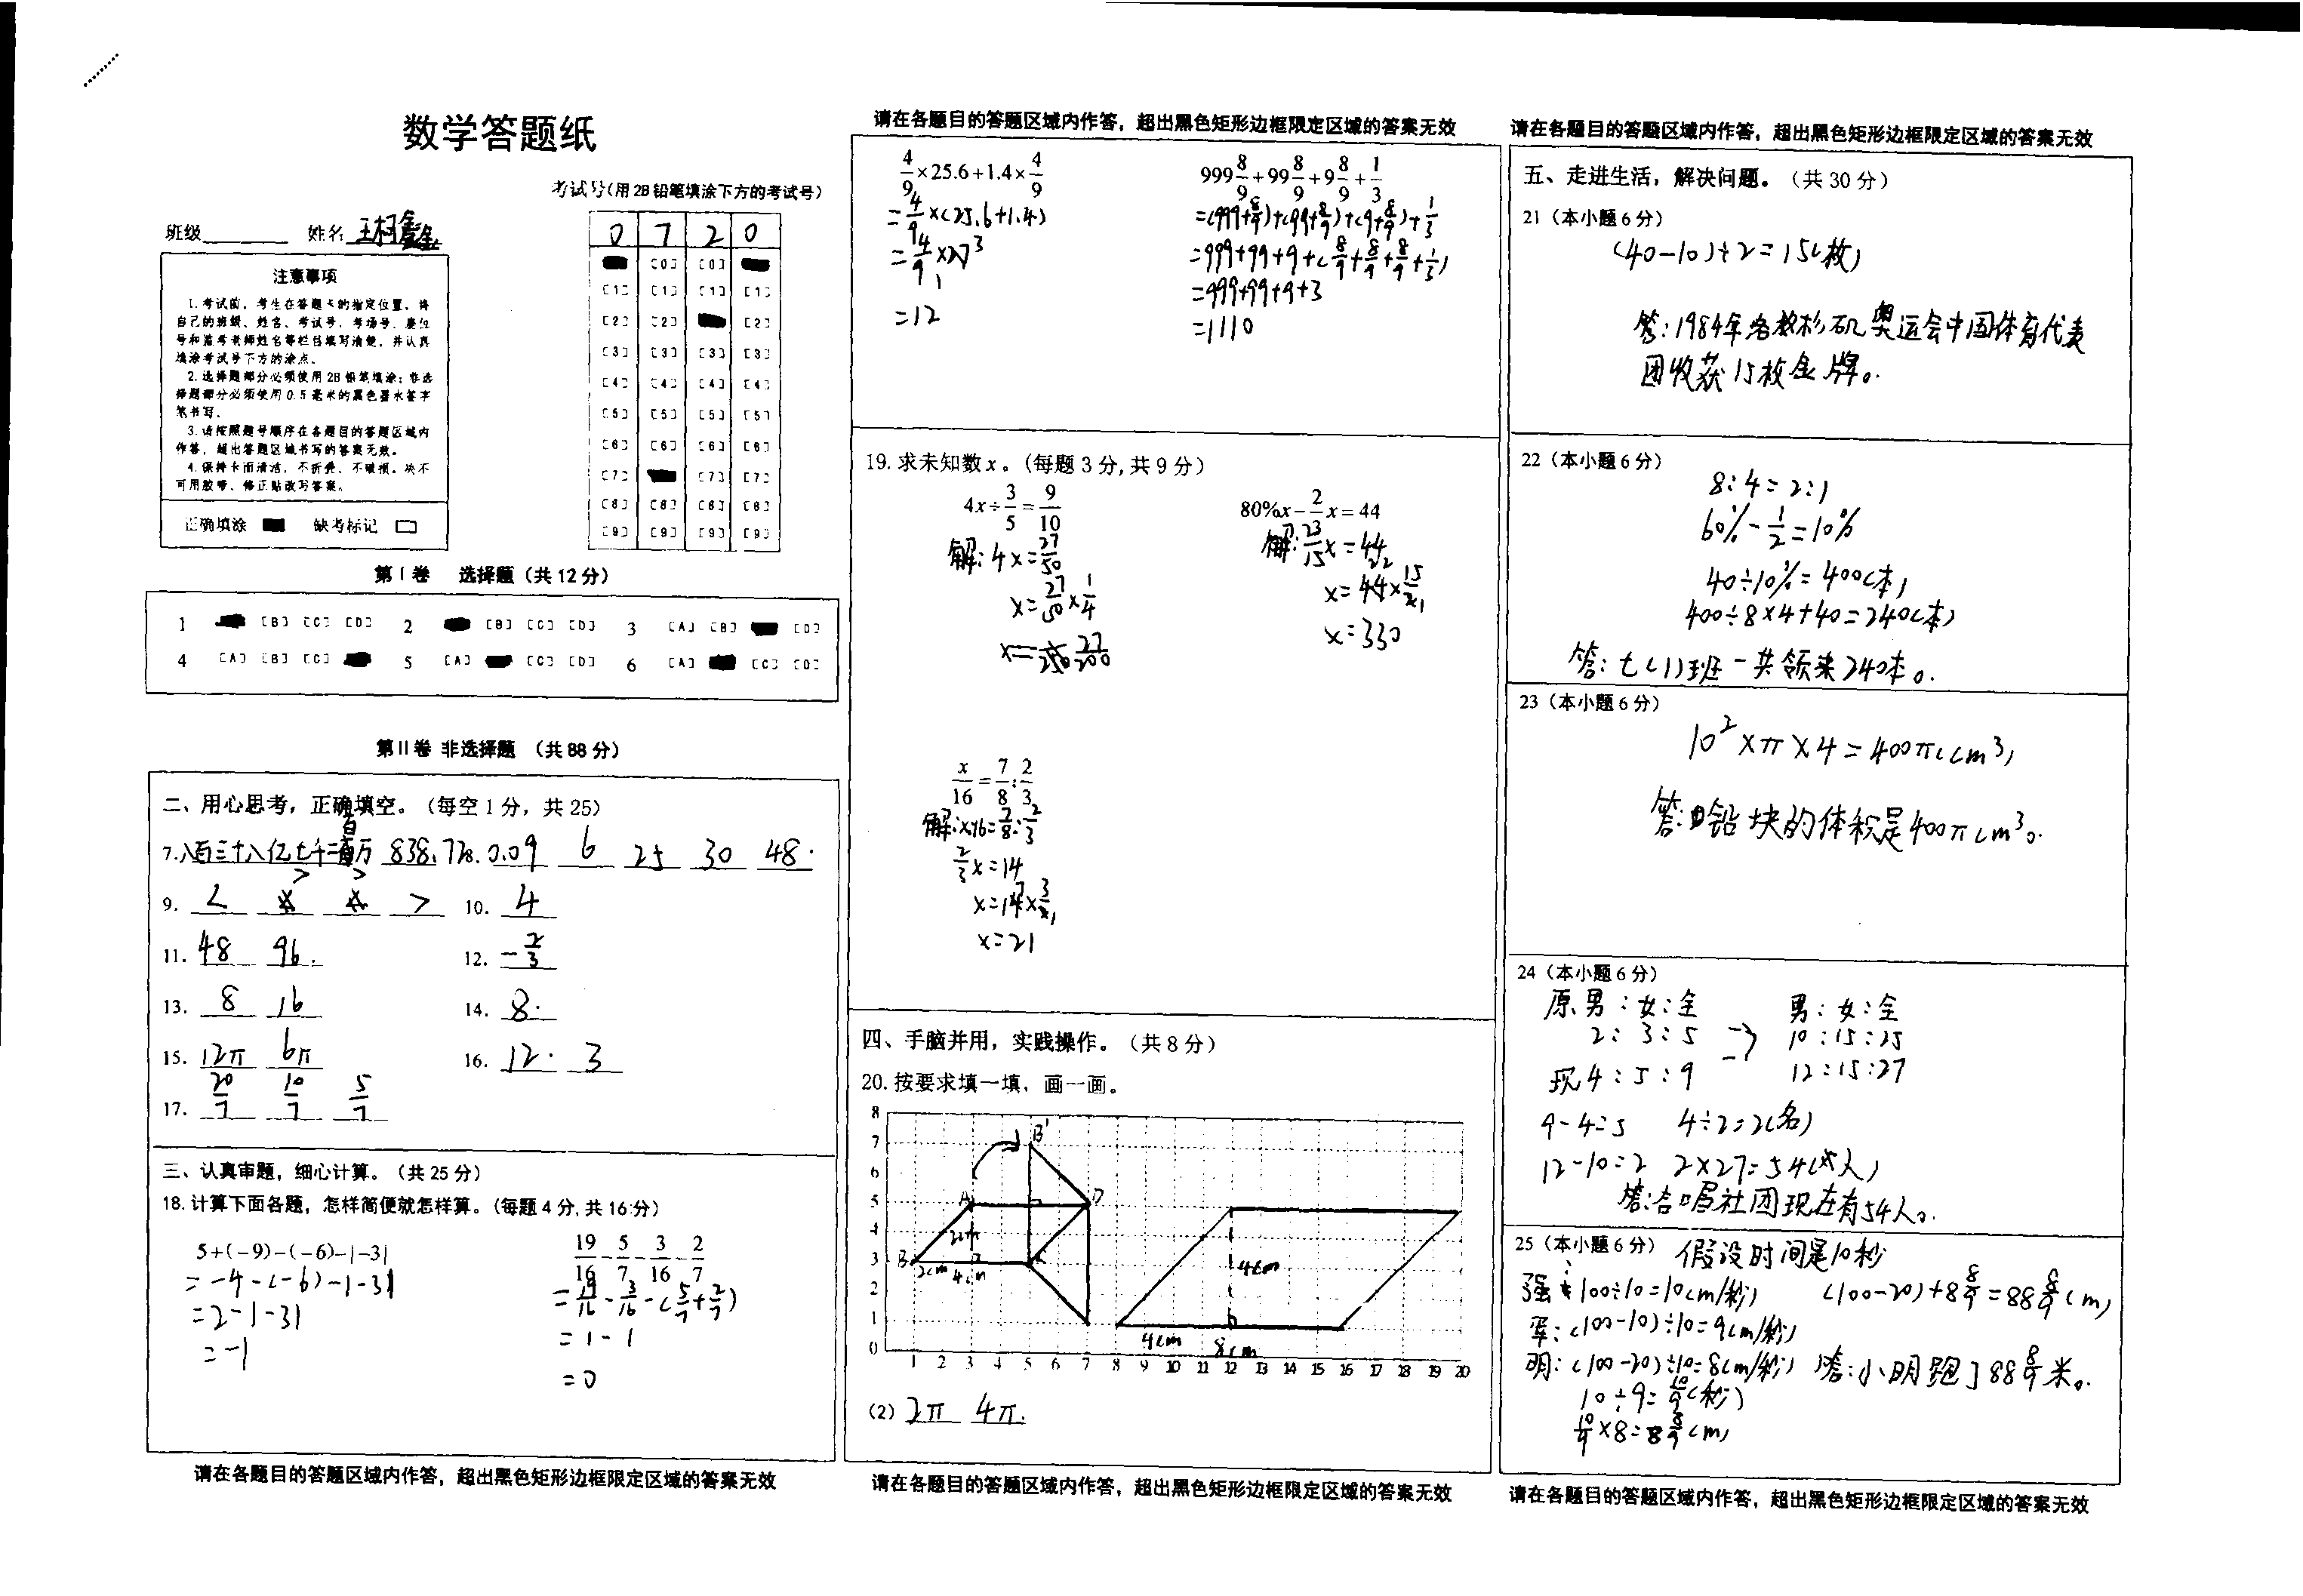 数学答题纸
考试号(用2B铅笔填涂下方的考试号)
班级 姓名 王柯鑫
0 7 2 0
注意事项
1.考试前,考生在答题卡的指定位置,将
自己的班级、姓名、考试号、考场号、座位
号和监考老师姓名等栏目填写清楚,并认真
填涂考试号下方的涂点。
2.选择题部分必须使用2B铅笔填涂;非选
择题部分必须使用0.5毫米的黑色墨水签字
笔书写。
3.请按照题号顺序在各题目的答题区域内
作答,超出答题区域书写的答案无效。
4.保持卡面清洁,不折叠、不破损。决不
可用胶带、修正贴改写答案。
正确填涂 缺考标记
[0] [0]
[1] [1] [1] [1]
[2] [2] [2]
[3] [3] [3] [3]
[4] [4] [4] [4]
[5] [5] [5] [5]
[6] [6] [6] [6]
[7] [7] [7]
[8] [8] [8] [8]
[9] [9] [9] [9]
第I卷 选择题(共12分)
1 [B] [C] [D] 2 [B] [C] [D] 3 [A] [B] [D]
4 [A] [B] [C] 5 [A] [C] [D] 6 [A] [C] [D]
第II卷 非选择题 (共88分)
二、用心思考,正确填空。(每空1分,共25)
7.八百三十八亿七千二百万 838.728. 0.09 6 25 30 48.
9. < > > > 10. 4
11. 48 96. 12. -2/3
13. 8 16 14. 8.
15. 12π 6π 16. 12. 3
17. 20/7 10/7 5/7
三、认真审题,细心计算。(共25分)
18.计算下面各题,怎样简便就怎样算。(每题4分,共16分)
5+(-9)-(-6)-|-3|
=-4-(-6)-|-3|
=2-|-3|
=-1
19/16-5/7-3/16-2/7
=19/16-3/16-(5/7+2/7)
=1-1
=0
请在各题目的答题区域内作答,超出黑色矩形边框限定区域的答案无效
请在各题目的答题区域内作答,超出黑色矩形边框限定区域的答案无效
4/9×25.6+1.4×4/9
=4/9×(25.6+1.4)
=4/9×27 3 1
=12
999 8/9+99 8/9+9 8/9+1/3
=(999+8/9)+(99+8/9)+(9+8/9)+1/3
=999+99+9+(8/9+8/9+8/9+1/3)
=999+99+9+3
=1110
19.求未知数x。(每题3分,共9分)
4x÷3/5=9/10
解:4x=27/50
x=27/50×1/4
x=27/200
80%x-2/3x=44
解:2/15x=44
x=44×15/2 22 1
x=330
x/16=7/8:2/3
解:x:16=7/8:2/3
2/3x=14
x=14×3/2 7 1
x=21
四、手脑并用,实践操作。(共8分)
20.按要求填一填,画一画。
8
7 B'
6
5 A D
4 2cm 4cm
3 B 2cm 4cm C
2
1 4cm 8cm
0 1 2 3 4 5 6 7 8 9 10 11 12 13 14 15 16 17 18 19 20
(2) 2π 4π.
请在各题目的答题区域内作答,超出黑色矩形边框限定区域的答案无效
请在各题目的答题区域内作答,超出黑色矩形边框限定区域的答案无效
五、走进生活,解决问题。(共30分)
21(本小题6分)
(40-10)÷2=15(枚)
答:1984年洛杉矶奥运会中国体育代表
团收获15枚金牌。
22(本小题6分)
8:4=2:1
60%-1/2=10%
40÷10%=400(本)
400÷8×4+40=240(本)
答:七(1)班一共领来240本。
23(本小题6分)
10²×π×4=400π(cm³)
答:铅块的体积是400πcm³。
24(本小题6分)
原 男:女:全 男:女:全
2:3:5 → 10:15:25
现4:5:9 → 12:15:27
9-4=5 4÷2=2(名)
12-10=2 2×27=54(人)
答:合唱社团现在有54人。
25(本小题6分) 假设时间是10秒
强:100÷10=10(m/秒) (100-20)+8 8/9=88 8/9(m)
军:(100-10)÷10=9(m/秒)
明:(100-20)÷10=8(m/秒) 答:小明跑了88 8/9米。
10÷9=10/9(秒)
10/9×8=8 8/9(m)
请在各题目的答题区域内作答,超出黑色矩形边框限定区域的答案无效